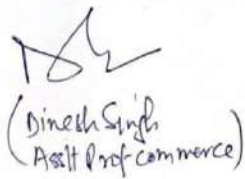 (Dinesh Singh
Asstt Prof-commerce)